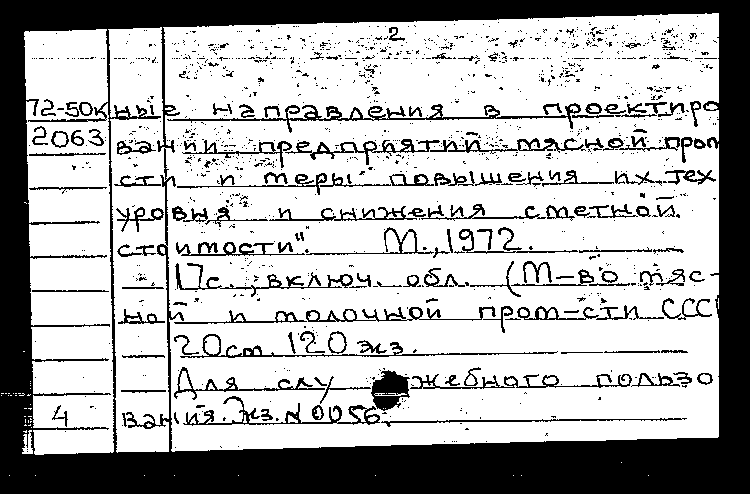 2
72-50к ные направления в проектиро
2063 вании предприятий мясной пром
сти и меры повышения их тех
уровня и снижения сметной
стоимости". М., 1972.
17с., включ. обл. (М-во мяс-
ной и молочной пром-сти СССР
20см. 120 экз.
Для служебного пользо
4 вания. Экз. № 0056.